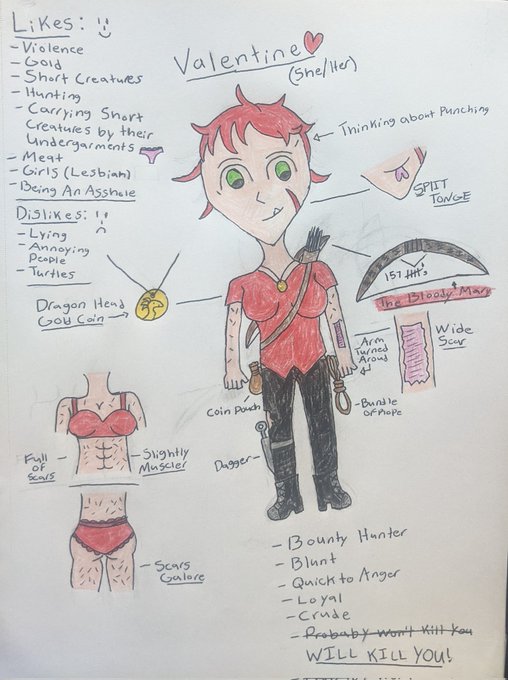 Likes:
- Violence
- Gold
- Short Creatures
- Hunting
- Carrying Short
Creatures by their
Undergarments
- Meat
- Girls (Lesbian)
- Being An Asshole
Dislikes:
- Lying
- Annoying
People
- Turtles
Valentine
(She/Her)
Thinking about Punching
SPlIT
TONGE
157
the Bloody Mary
Wide
Scar
Arm
Turned
Aroud
Dragon Head
Gold Coin
Coin Pouch
Bundle
Of Rope
Dagger
Full
of
Scars
Slightly
Muscler
Scars
Galore
- Bounty Hunter
- Blunt
- Quick to Anger
- Loyal
- Crude
- Probably Won't Kill You
WILL KILL YOU!